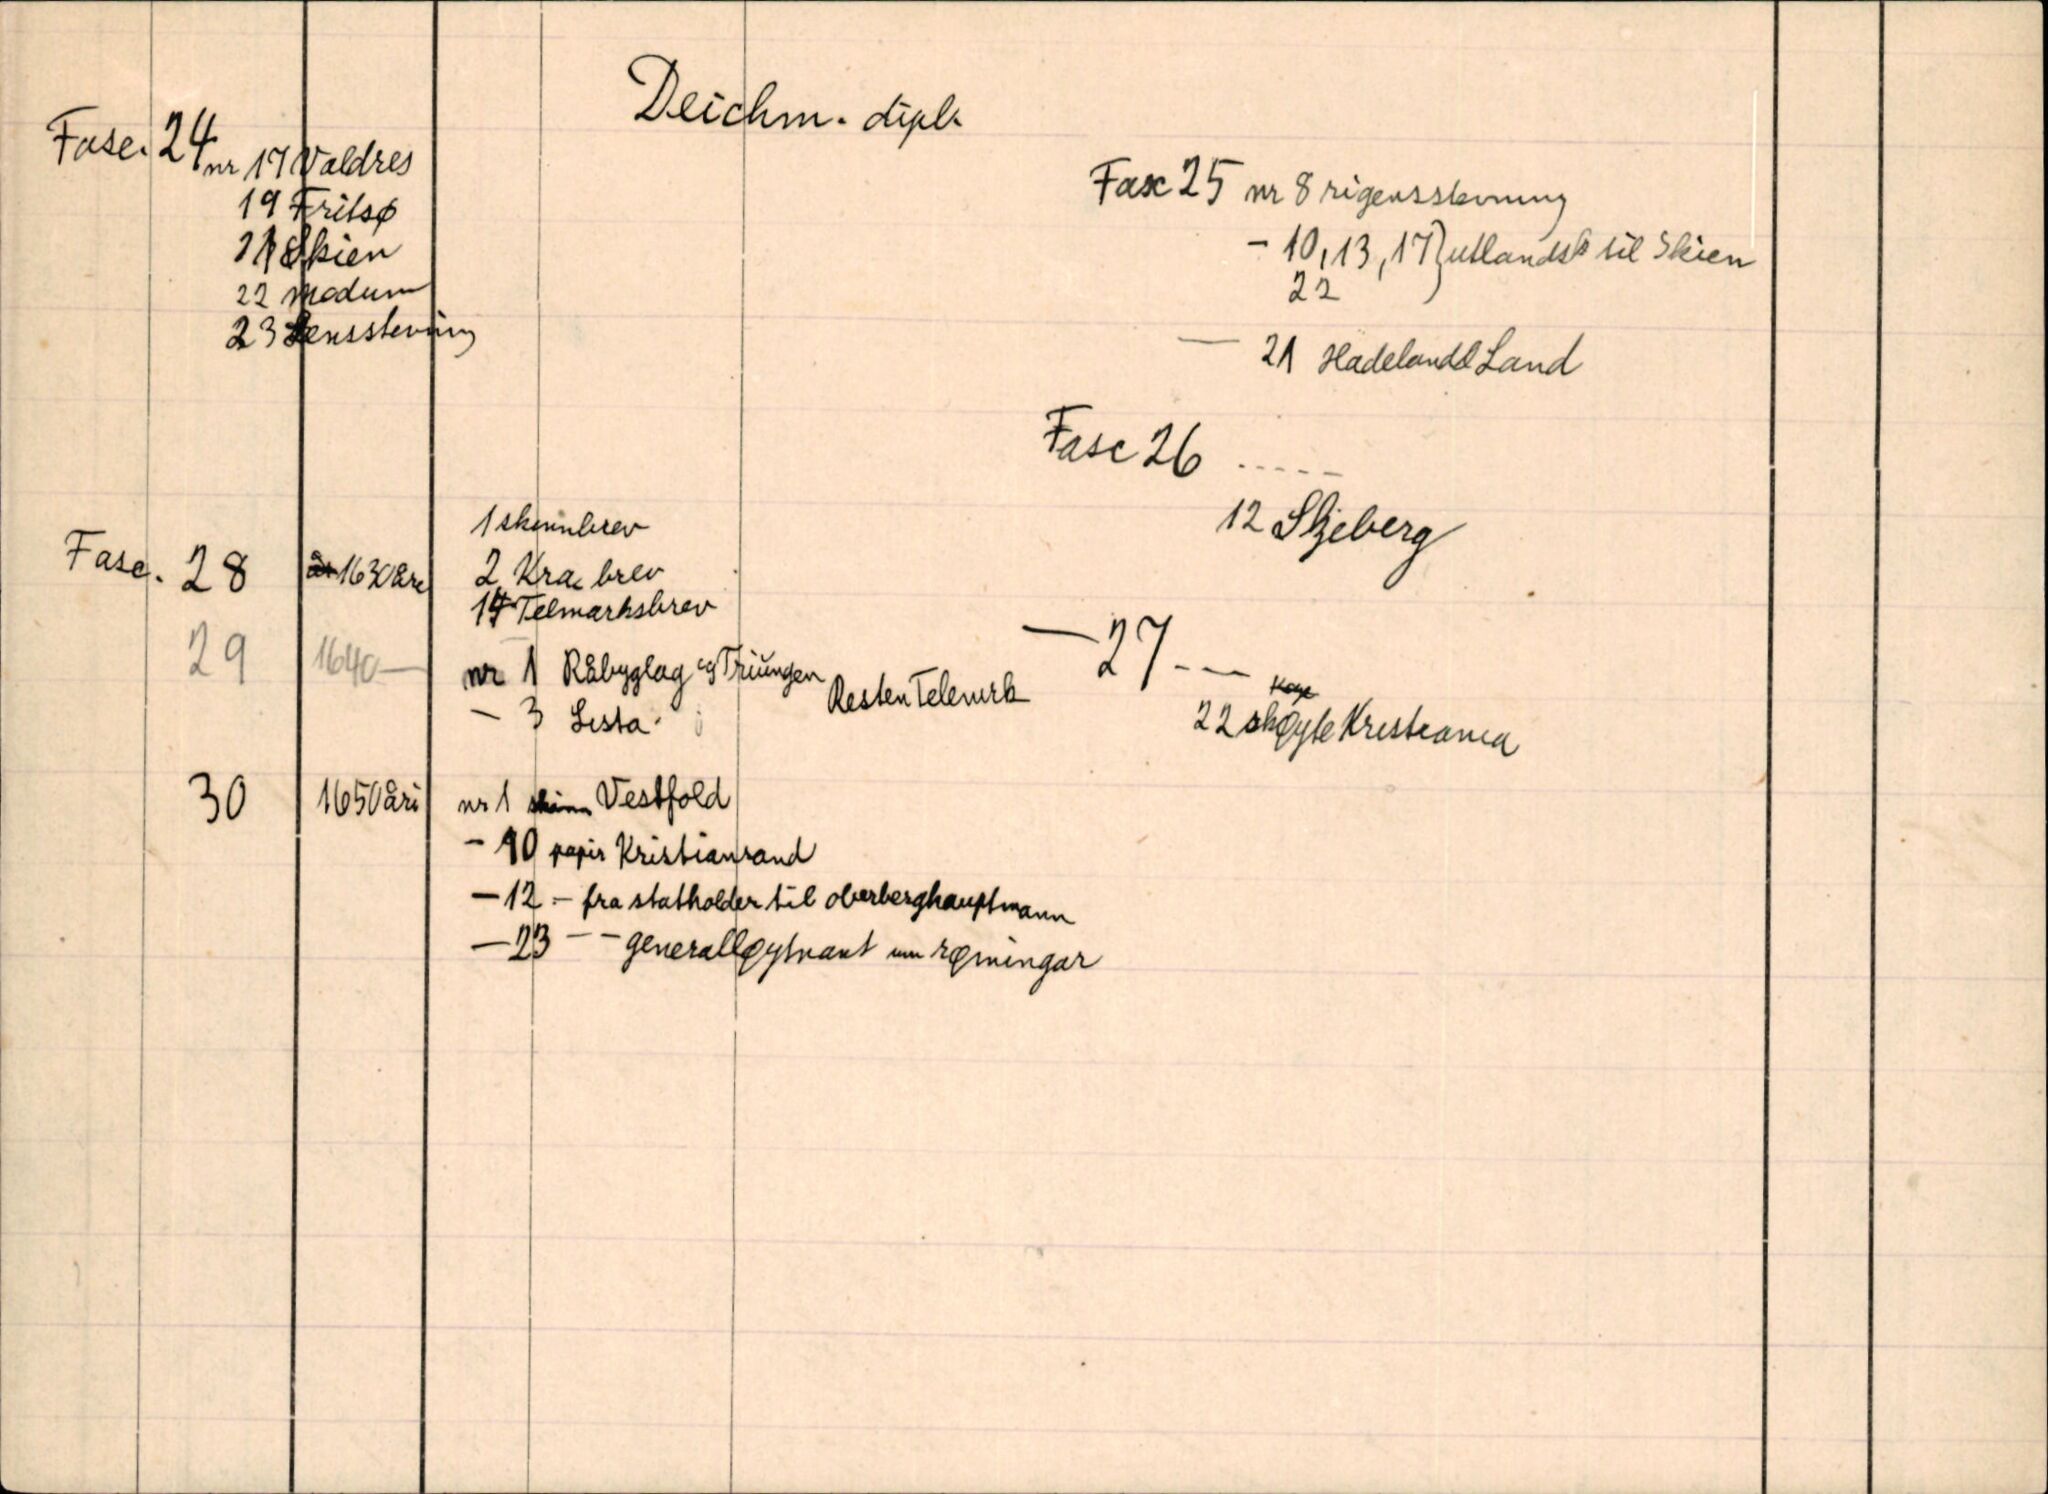 Deichm. dipl.
Fasc. 24 nr 17 Valdres
19 Fritsø
21 Skien
22 Modum
23 Lensstevning
Fasc 25 nr 8 rigensstevning
- 10, 13, 17 } utlandsk til Skien
22
— 21 Hadeland Land
Fasc 26 .....
12 Skjeberg
— 27 ---
22 skøyte Kristiania
Fasc. 28 1630åre
1 skinnbrev
2 brev
14 Telmarksbrev
29 1640—
nr 1 Råbyglag og Treungen
— 3 Lista.
Resten Telemrk
30 1650åri
nr 1 skinn Vestfold
- 10 papir Kristiansand
— 12 - fra statholder til oberberghauptmann
— 23 - - generalløytnant um rømingar